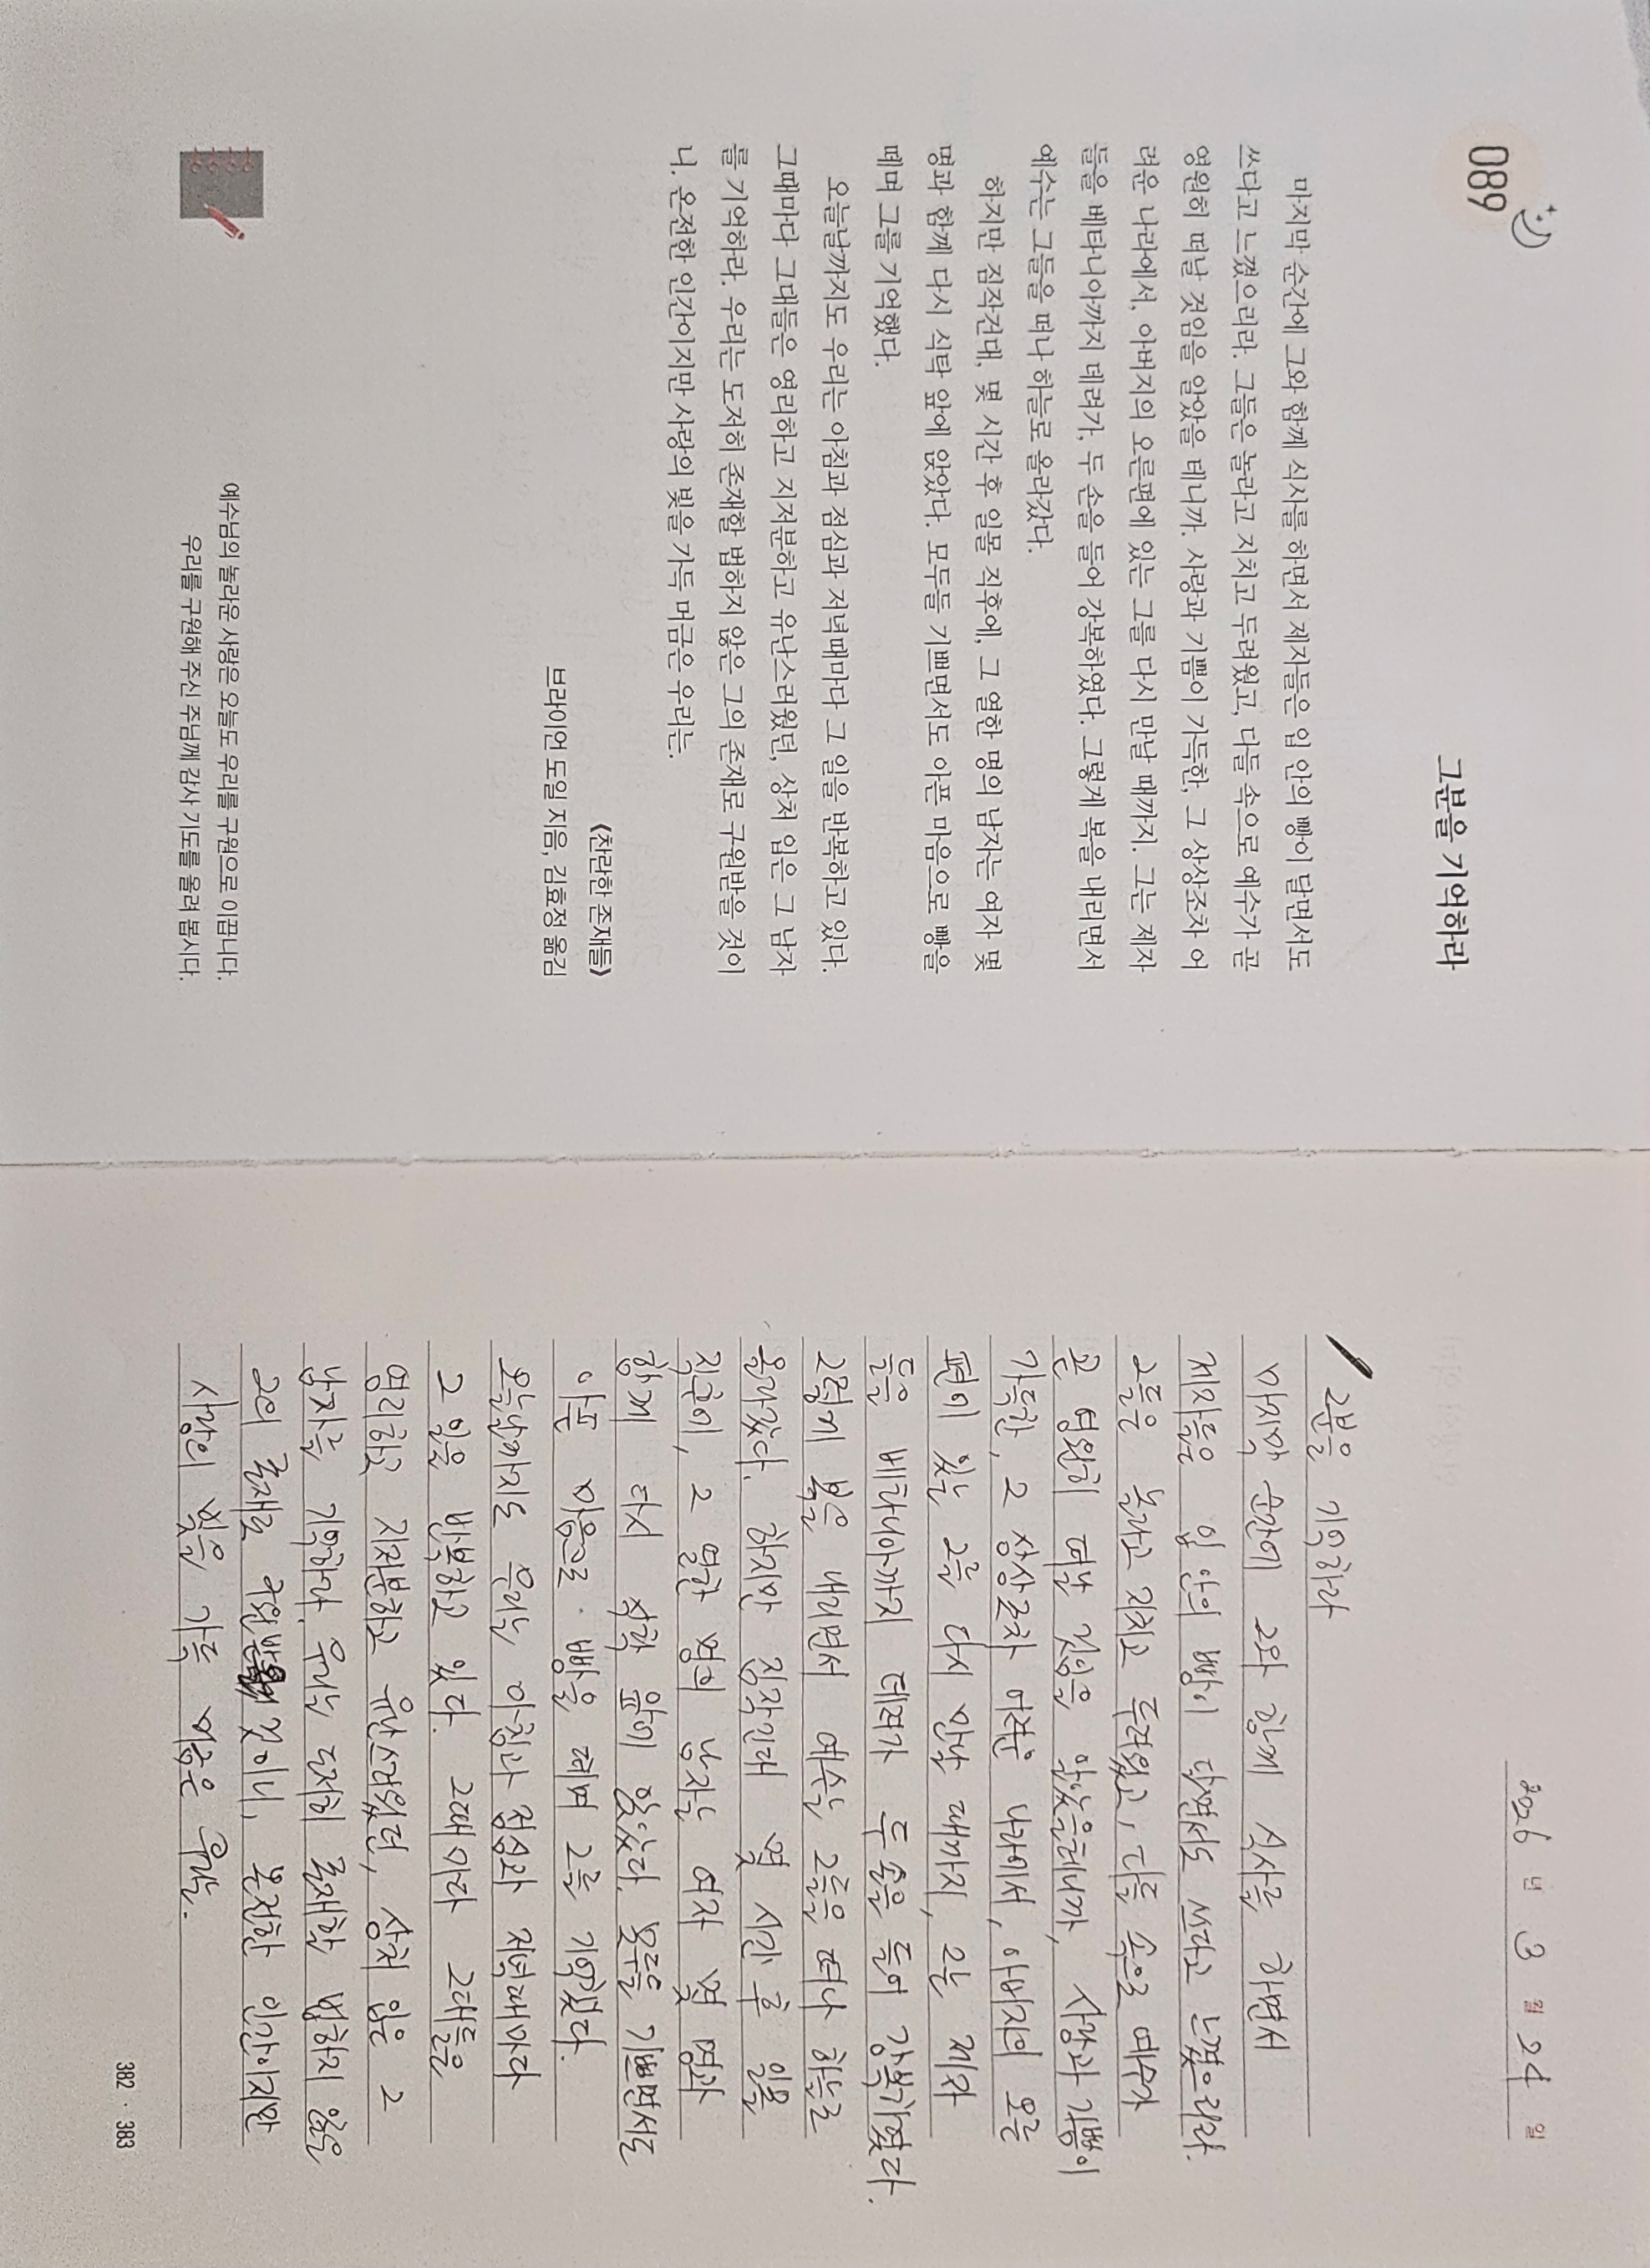 089
그분을 기억하라
마지막 순간에 그와 함께 식사를 하면서 제자들은 입 안의 빵이 달면서도
쓰다고 느꼈으리라. 그들은 놀라고 지치고 두려웠고, 다들 속으로 예수가 곧
영원히 떠날 것임을 알았을 테니까. 사랑과 기쁨이 가득한, 그 상상조차 어
려운 나라에서, 아버지의 오른편에 있는 그를 다시 만날 때까지. 그는 제자
들을 베타니아까지 데려가, 두 손을 들어 강복하였다. 그렇게 복을 내리면서
예수는 그들을 떠나 하늘로 올라갔다.
하지만 짐작건대, 몇 시간 후 일몰 직후에, 그 열한 명의 남자는 여자 몇
명과 함께 다시 식탁 앞에 앉았다. 모두들 기쁘면서도 아픈 마음으로 빵을
떼며 그를 기억했다.
오늘날까지도 우리는 아침과 점심과 저녁때마다 그 일을 반복하고 있다.
그때마다 그대들은 영리하고 지저분하고 유난스러웠던, 상처 입은 그 남자
를 기억하라. 우리는 도저히 존재할 법하지 않은 그의 존재로 구원받을 것이
니. 온전한 인간이지만 사랑의 빛을 가득 머금은 우리는.
《찬란한 존재들》
브라이언 도일 지음, 김효정 옮김
예수님의 놀라운 사랑은 오늘도 우리를 구원으로 이끕니다.
우리를 구원해 주신 주님께 감사 기도를 올려 봅시다.
2026 년 3 월 24 일
그분을 기억하라
마지막 순간에 그와 함께 식사를 하면서
제자들은 입 안의 빵이 달면서도 쓰다고 느꼈으리라.
그들은 놀라고 지치고 두려웠고, 다들 속으로 예수가
곧 영원히 떠날 것임을 알았을테니까, 사랑과 기쁨이
가득한, 그 상상조차 어려운 나라에서, 아버지의 오른
편에 있는 그를 다시 만날 때까지, 그는 제자
들을 베타니아까지 데려가 두 손을 들어 강복하였다.
그렇게 복을 내리면서 예수는 그들을 떠나 하늘로
올라갔다. 하지만 짐작건대 몇 시간 후 일몰
직후에, 그 열한 명의 남자는 여자 몇 명과
함께 다시 식탁 앞에 앉았다. 모두들 기쁘면서도
아픈 마음으로 빵을 떼며 그를 기억했다.
오늘날까지도 우리는 아침과 점심과 저녁때마다
그 일을 반복하고 있다. 그때마다 그대들은
영리하고 지저분하고 유난스러웠던, 상처 입은 그
남자를 기억하라. 우리는 도저히 존재할 법하지 않은
그의 존재로 구원받을 것이니, 온전한 인간이지만
사랑의 빛을 가득 머금은 우리는.
382 · 383